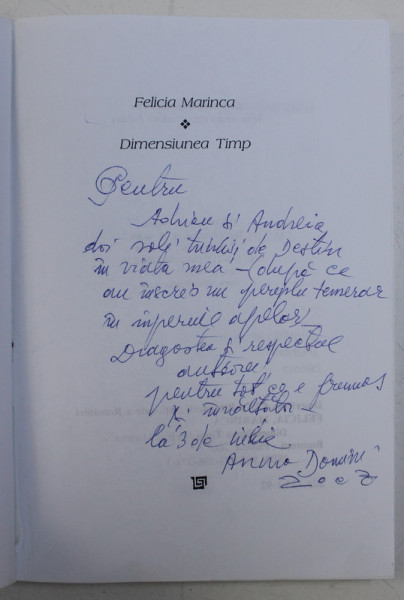 Felicia Marinca
Dimensiunea Timp
Pentru
Adrian și Andreia
doi soli trimiși de Destin
în viața mea – (după ce
au înscris un periplu temerar
în imperiile apelor) –
Dragostea și respectul
autoarei
pentru tot ce e frumos
și înălțător –
la 3 de iulie
Anno Domini
2007